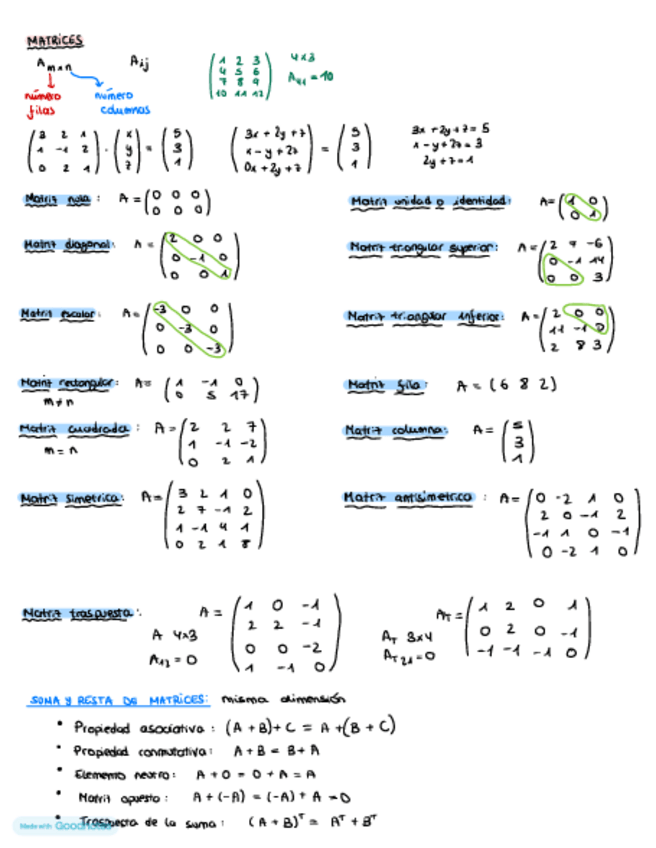 MATRICES
A m×n
Aij
número filas
número columnas
( 1 2 3
4 5 6
7 8 9
10 11 12 )
4×3
A41 = 10
( 3 2 1
1 -1 2
0 2 1 ) · ( x
y
z ) = ( 5
3
1 )
( 3x + 2y + z
x - y + 2z
0x + 2y + z ) = ( 5
3
1 )
3x + 2y + z = 5
x - y + 2z = 3
2y + z = 1
Matriz nula : A = ( 0 0 0
0 0 0 )
Matriz unidad o identidad: A= ( 1 0
0 1 )
Matriz diagonal: A = ( 2 0 0
0 -1 0
0 0 1 )
Matriz triangular superior: A = ( 2 7 -6
0 -1 14
0 0 3 )
Matriz escalar: A = ( -3 0 0
0 -3 0
0 0 -3 )
Matriz triangular inferior: A = ( 2 0 0
11 -1 0
2 8 3 )
Matriz rectangular: A= ( 1 -1 0
0 5 17 )
m≠n
Matriz fila: A = ( 6 8 2 )
Matriz cuadrada : A = ( 2 2 7
1 -1 -2
0 2 1 )
m = n
Matriz columna: A = ( 5
3
1 )
Matriz simetrica: A= ( 3 2 1 0
2 7 -1 2
1 -1 4 1
0 2 1 8 )
Matriz antisimetrica : A= ( 0 -2 1 0
2 0 -1 2
-1 1 0 -1
0 -2 1 0 )
Matriz traspuesta: A = ( 1 0 -1
2 2 -1
0 0 -2
1 -1 0 )
A 4×3
A13 = 0
AT = ( 1 2 0 1
0 2 0 -1
-1 -1 -1 0 )
AT 3×4
AT21 = 0
SUMA Y RESTA DE MATRICES: misma dimensión
• Propiedad asociativa : (A + B) + C = A + (B + C)
• Propiedad conmutativa : A + B = B + A
• Elemento neutro : A + 0 = 0 + A = A
• Matriz opuesta : A + (-A) = (-A) + A = 0
• Traspuesta de la suma : (A + B)ᵀ = Aᵀ + Bᵀ
Made with Goodnotes